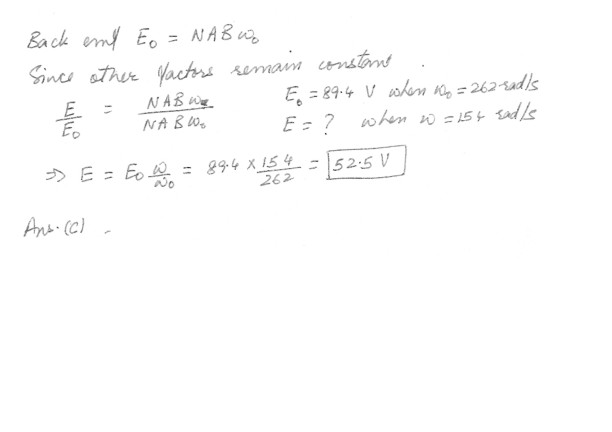 Back emf E₀ = NABω₀
Since other factors remain constant .
E/E₀ = NABω/NABω₀ E₀ = 89.4 V when ω₀ = 262 rad/s
E = ? when ω = 154 rad/s
⇒ E = E₀ ω/ω₀ = 89.4 × 154/262 = 52.5 V
Ans. (C) .